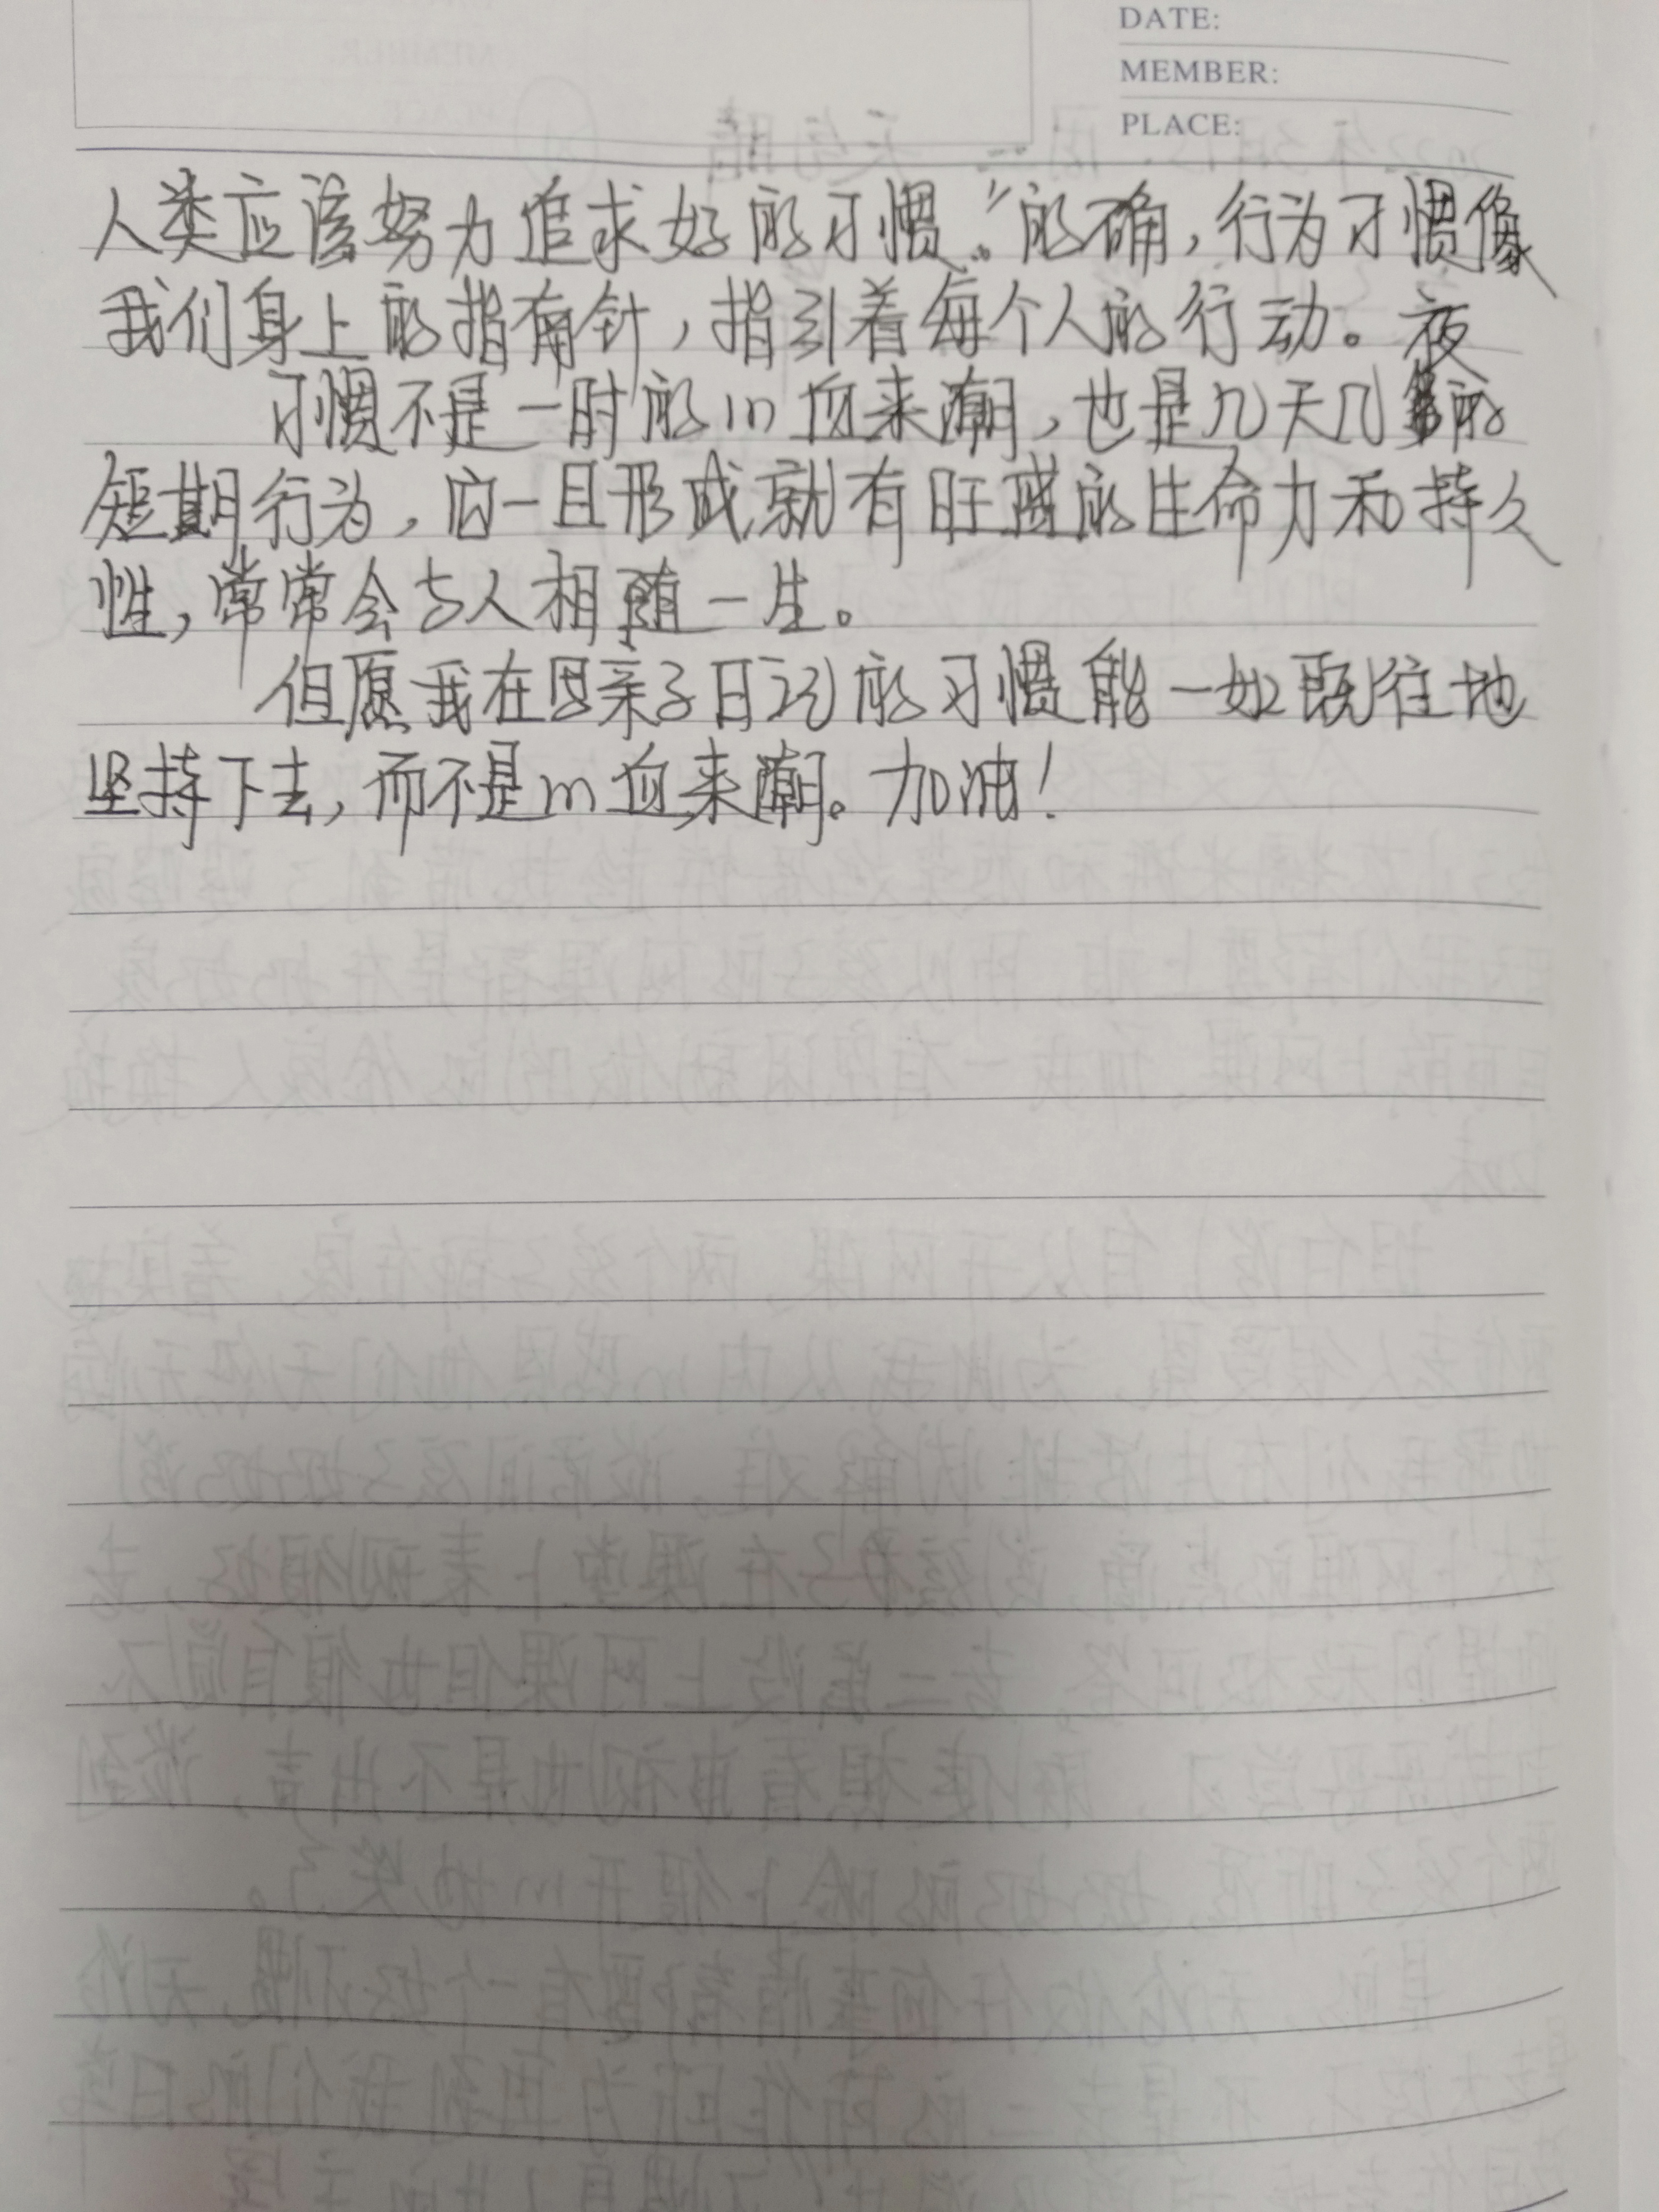 DATE:
MEMBER:
PLACE:
人类应该努力追求好的习惯。”的确，行为习惯像
我们身上的指南针，指引着每个人的行动。
习惯不是一时的心血来潮，也是几天几的
短期行为，它一旦形成就有旺盛的生命力和持久
性，常常会与人相随一生。
但愿我在写亲子日记的习惯能一如既往地
坚持下去，而不是心血来潮。加油！